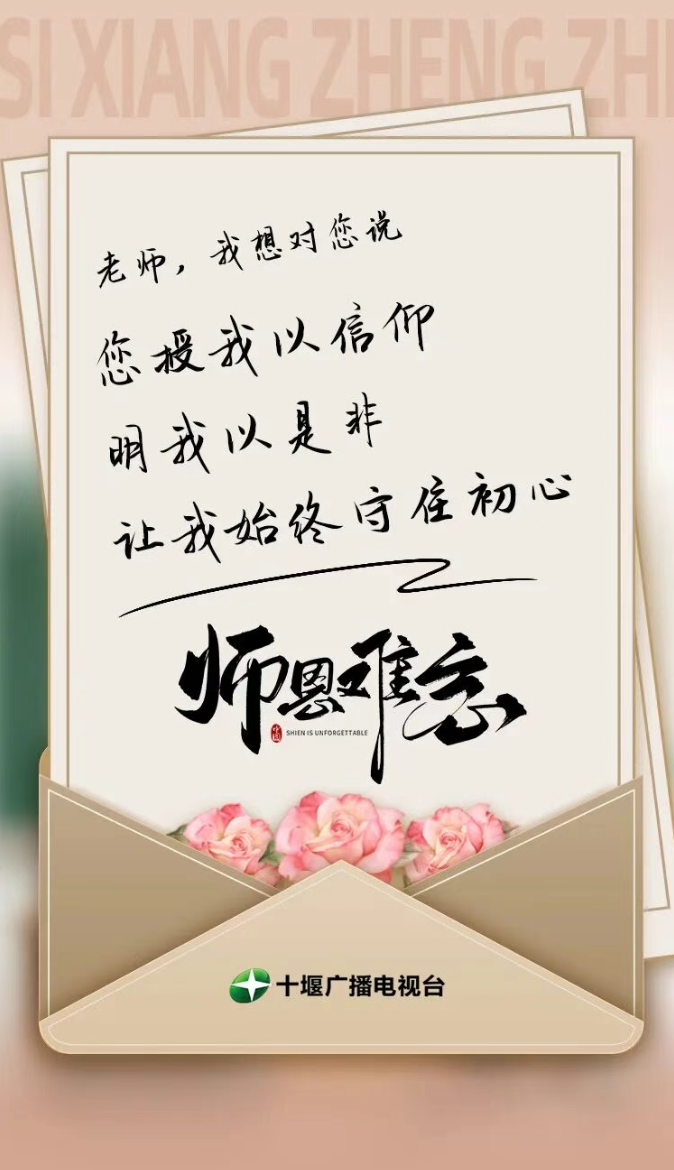 SI XIANG ZHENG ZHI
老师，我想对您说
您授我以信仰
明我以是非
让我始终守住初心
师恩难忘
SHIEN IS UNFORGETTABLE
十堰广播电视台